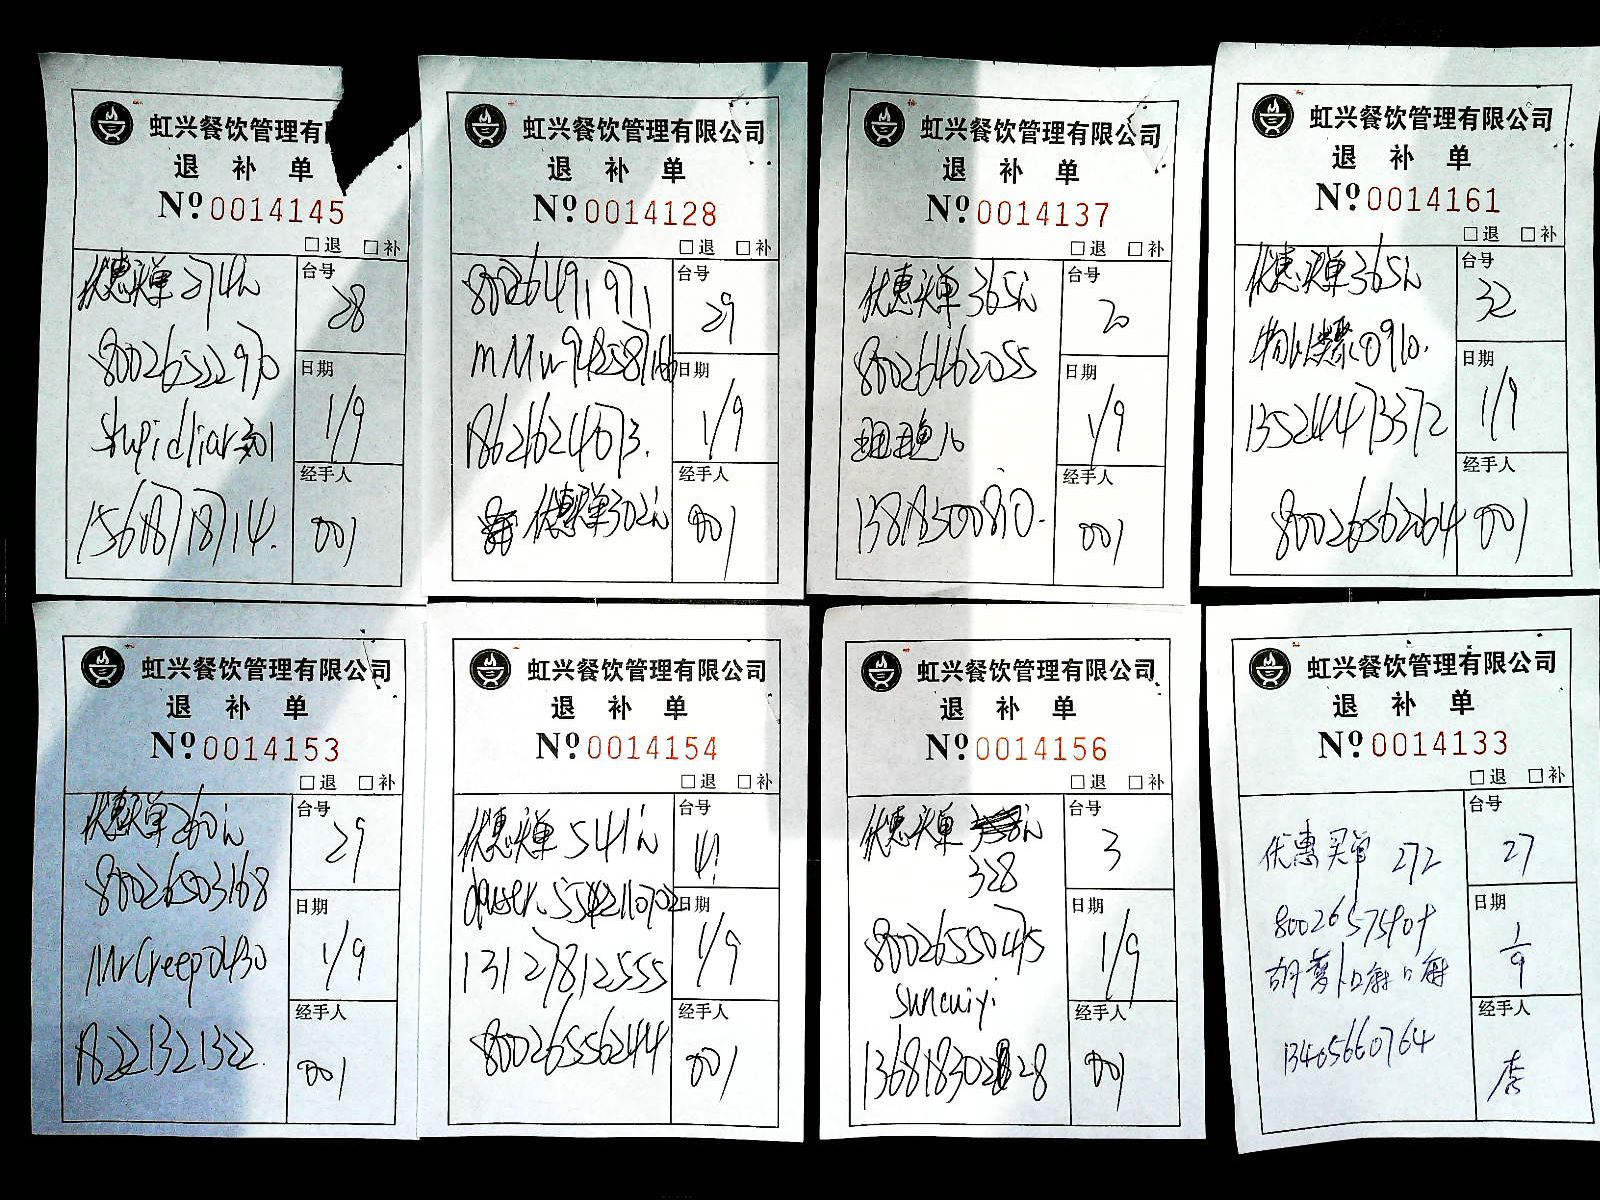 虹兴餐饮管理有
退 补 单
Nº 0014145
□退 □补
优惠买单274元
台号
28
80026522970
日期
1/9
stupidliar301
经手人
15618718714.
001
虹兴餐饮管理有限公司
退 补 单
Nº 0014128
□退 □补
80026491971
台号
29
日期
1/9
18621624673.
经手人
优惠买单302元
001
虹兴餐饮管理有限公司
退 补 单
Nº 0014137
□退 □补
优惠买单365元
台号
20
80026462055
日期
1/9
经手人
13818500810.
001
虹兴餐饮管理有限公司
退 补 单
Nº 0014161
□退 □补
优惠买单365元
台号
32
物以类聚0910.
日期
1/9
13524473372
经手人
80026562064
001
虹兴餐饮管理有限公司
退 补 单
Nº 0014153
□退 □补
优惠买单260元
台号
29
80026503168
日期
1/9
MrCreep0430
经手人
18221321322.
001
虹兴餐饮管理有限公司
退 补 单
Nº 0014154
□退 □补
优惠买单541元
台号
日期
1/9
13127812555
经手人
80026556244
001
虹兴餐饮管理有限公司
退 补 单
Nº 0014156
□退 □补
优惠买单 元
328
台号
3
80026550475
日期
1/9
suncuiyi
经手人
13681830828
001
虹兴餐饮管理有限公司
退 补 单
Nº 0014133
□退 □补
优惠买单 272
台号
27
日期
1/9
13405660764
经手人
李